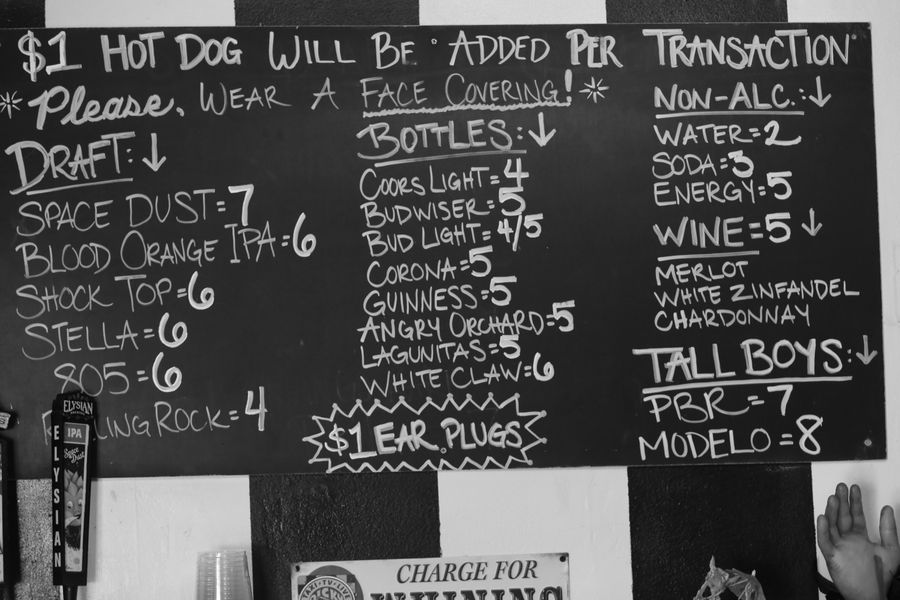 $1 HOT DOG WILL BE ADDED PER TRANSACTION
* Please, WEAR A FACE COVERING! *
DRAFT: ↓
SPACE DUST=7
BLOOD ORANGE IPA=6
SHOCK TOP=6
STELLA=6
805=6
LINGROCK=4
BOTTLES: ↓
COORS LIGHT=4
BUDWISER=5
BUD LIGHT=4/5
CORONA=5
GUINNESS=5
ANGRY ORCHARD=5
LAGUNITAS=5
WHITE CLAW=6
$1 EAR PLUGS
NON-ALC.: ↓
WATER=2
SODA=3
ENERGY=5
WINE=5 ↓
MERLOT
WHITE ZINFANDEL
CHARDONNAY
TALL BOYS: ↓
PBR=7
MODELO=8
ELYSIAN
IPA
Space Dust
ELYSIAN
CHARGE FOR
WHINING